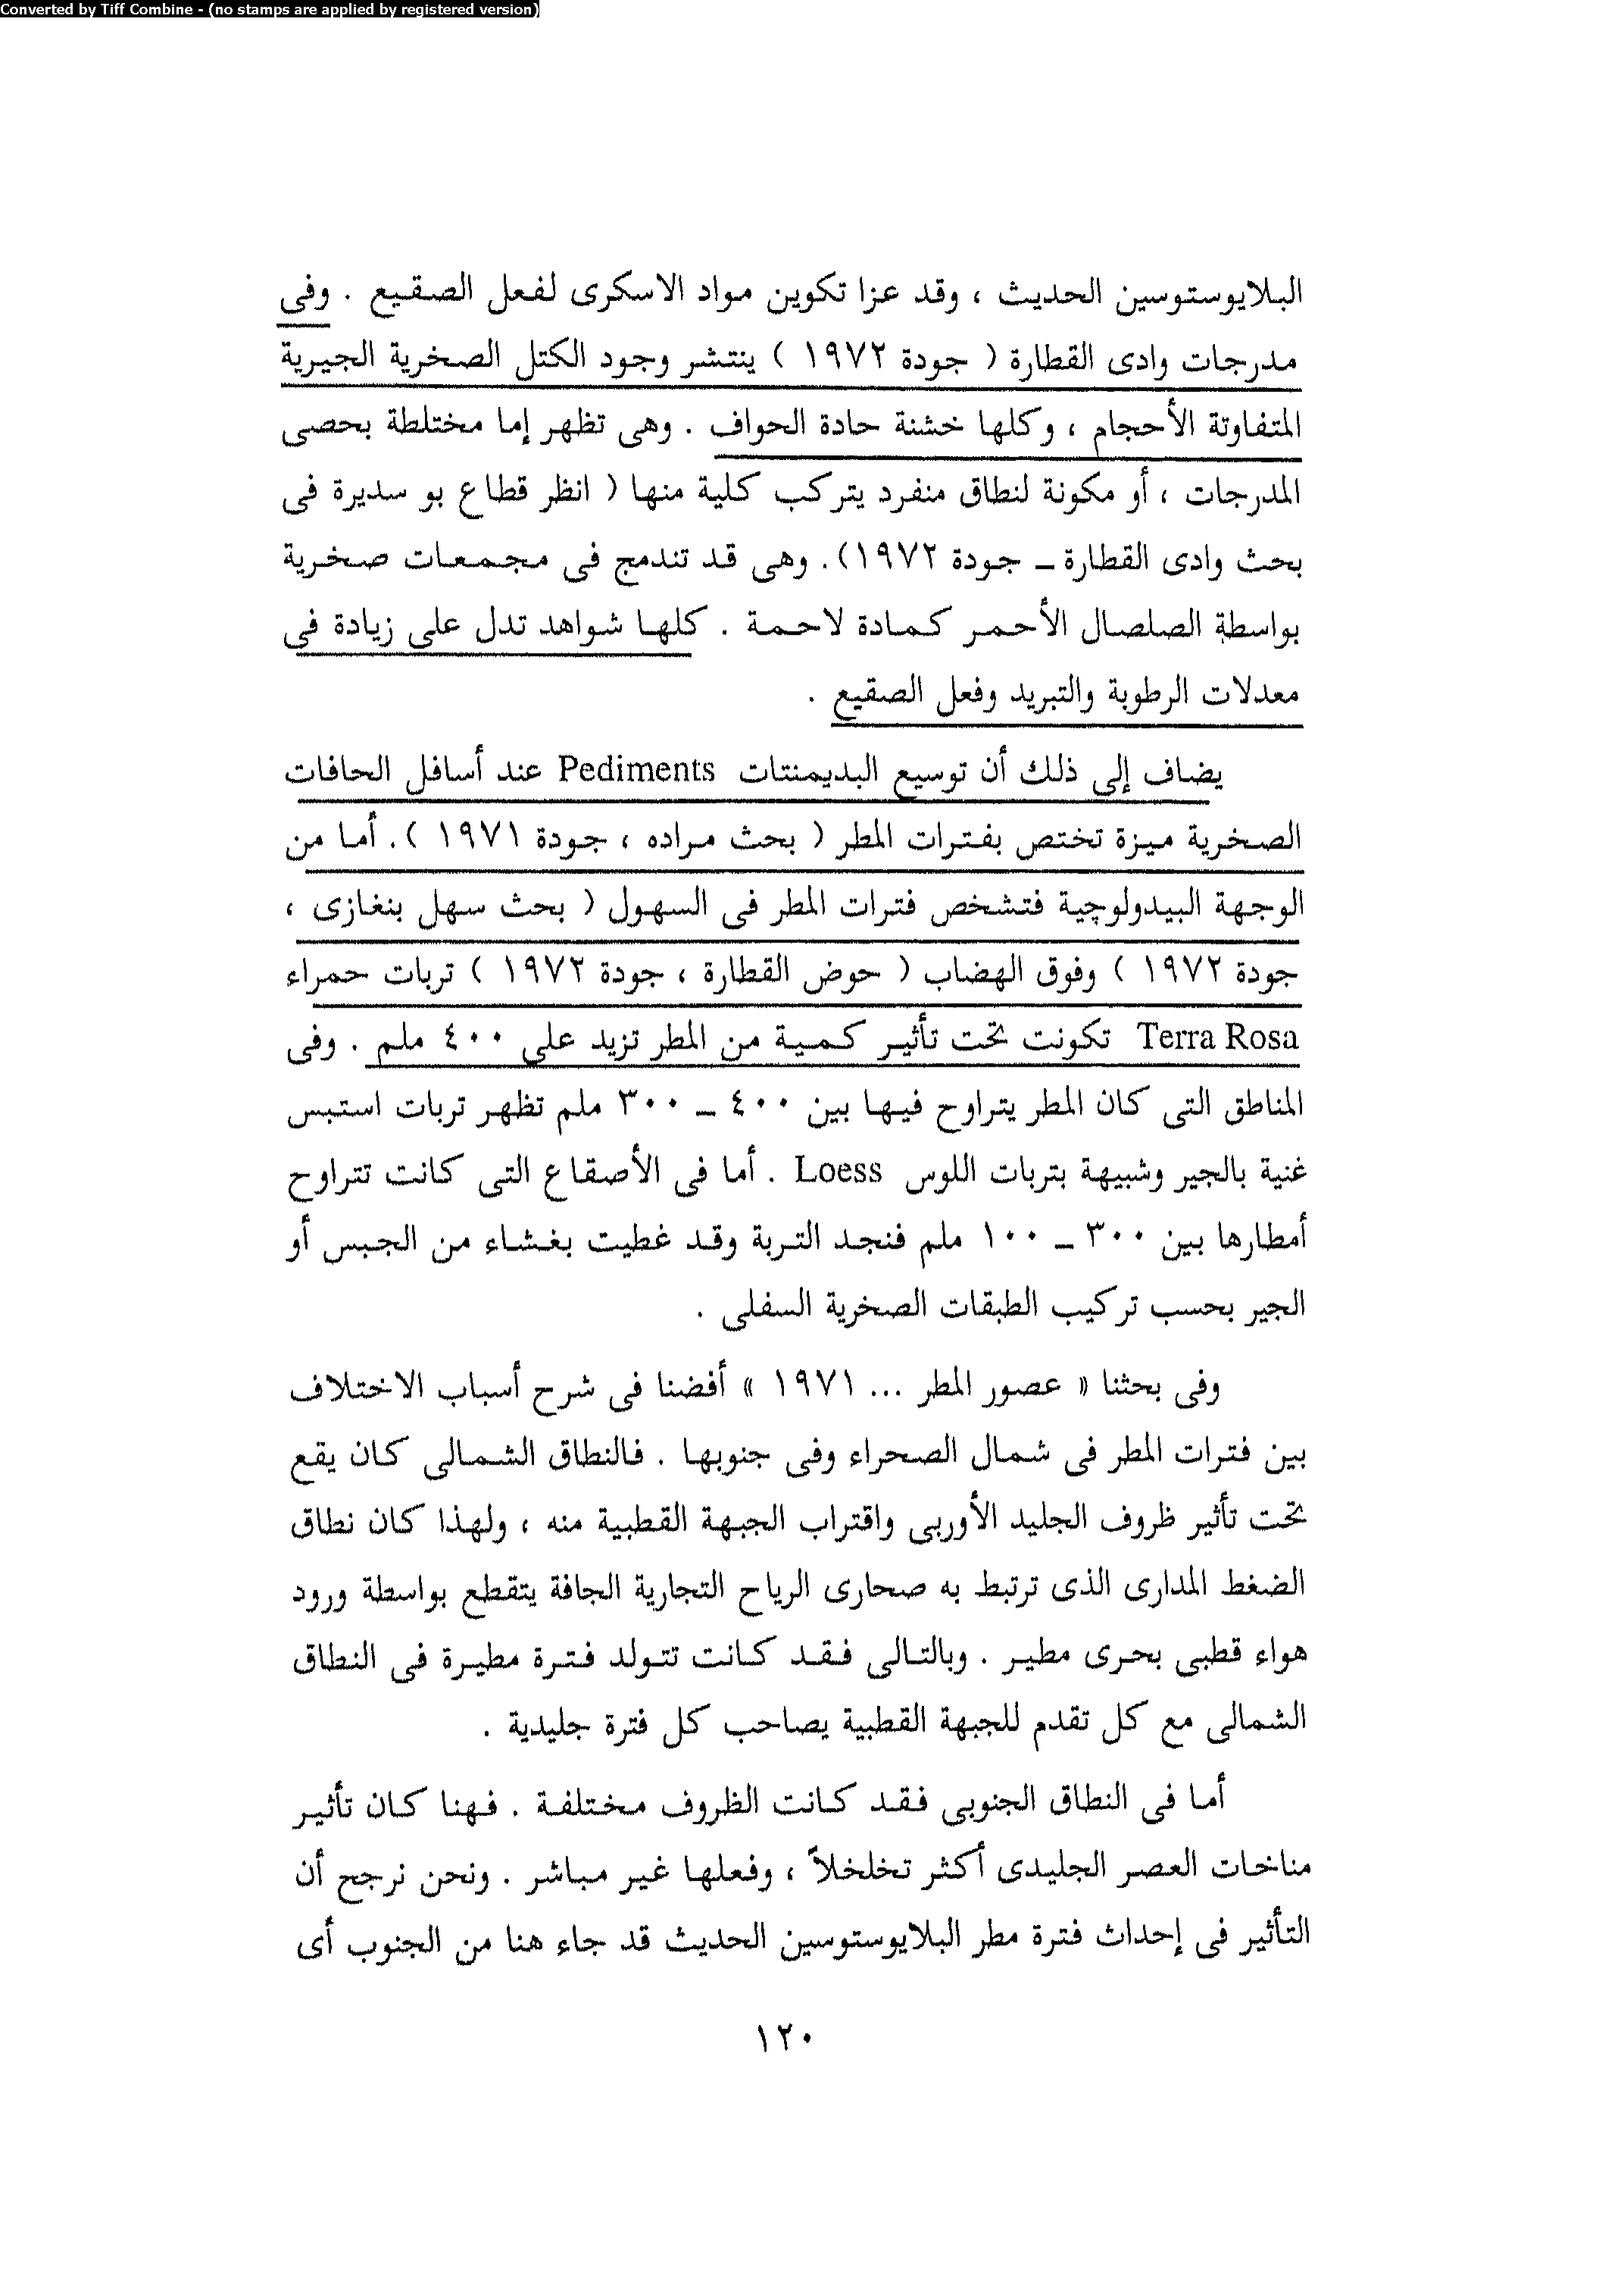 Converted by Tiff Combine - (no stamps are applied by registered version)
البلايوستوسين الحديث ، وقد عزا تكوين مواد الاسكرى لفعل الصقيع . وفى
مدرجات وادى القطارة ( جودة ١٩٧٢ ) ينتشر وجود الكتل الصخرية الجيرية
المتفاوتة الأحجام ، وكلها خشنة حادة الحواف . وهى تظهر إما مختلطة بحصى
المدرجات ، أو مكونة لنطاق منفرد يتركب كلية منها ( انظر قطاع بو سديرة فى
بحث وادى القطارة ـ جودة ١٩٧٢). وهى قد تندمج فى مجمعات صخرية
بواسطة الصلصال الأحمر كمادة لاحمة . كلها شواهد تدل على زيادة فى
معدلات الرطوبة والتبريد وفعل الصقيع .
يضاف إلى ذلك أن توسيع البديمنتات Pediments عند أسافل الحافات
الصخرية ميزة تختص بفترات المطر ( بحث مراده ، جودة ١٩٧١ ). أما من
الوجهة البيدولوچية فتشخص فترات المطر فى السهول ( بحث سهل بنغازى ،
جودة ١٩٧٢ ) وفوق الهضاب ( حوض القطارة ، جودة ١٩٧٢ ) تربات حمراء
Terra Rosa تكونت تحت تأثير كمية من المطر تزيد على ٤٠٠ ملم . وفى
المناطق التى كان المطر يتراوح فيها بين ٤٠٠ ـ ٣٠٠ ملم تظهر تربات استبس
غنية بالجير وشبيهة بتربات اللوس Loess . أما فى الأصقاع التى كانت تتراوح
أمطارها بين ٣٠٠ ـ ١٠٠ ملم فنجد التربة وقد غطيت بغشاء من الجبس أو
الجير بحسب تركيب الطبقات الصخرية السفلى .
وفى بحثنا « عصور المطر ... ١٩٧١ » أفضنا فى شرح أسباب الاختلاف
بين فترات المطر فى شمال الصحراء وفى جنوبها . فالنطاق الشمالى كان يقع
تحت تأثير ظروف الجليد الأوربى واقتراب الجبهة القطبية منه ، ولهذا كان نطاق
الضغط المدارى الذى ترتبط به صحارى الرياح التجارية الجافة يتقطع بواسطة ورود
هواء قطبى بحرى مطير . وبالتالى فقد كانت تتولد فترة مطيرة فى النطاق
الشمالى مع كل تقدم للجبهة القطبية يصاحب كل فترة جليدية .
أما فى النطاق الجنوبى فقد كانت الظروف مختلفة . فهنا كان تأثير
مناخات العصر الجليدى أكثر تخلخلاً ، وفعلها غير مباشر . ونحن نرجح أن
التأثير فى إحداث فترة مطر البلايوستوسين الحديث قد جاء هنا من الجنوب أى
١٢٠